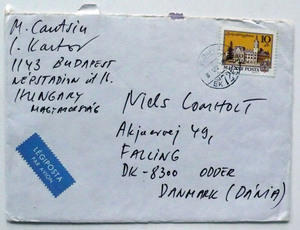 M. Cantsin
I. Kantor
1143 BUDAPEST
NÉPSTADION ÚT
HUNGARY
MAGYARORSZÁG
10
MAGYAR POSTA
Niels Lomholt
Akjaervej 49,
FALLING
DK-8300 ODDER
DANMARK (DÁNIA)
LÉGIPOSTA
PAR AVION